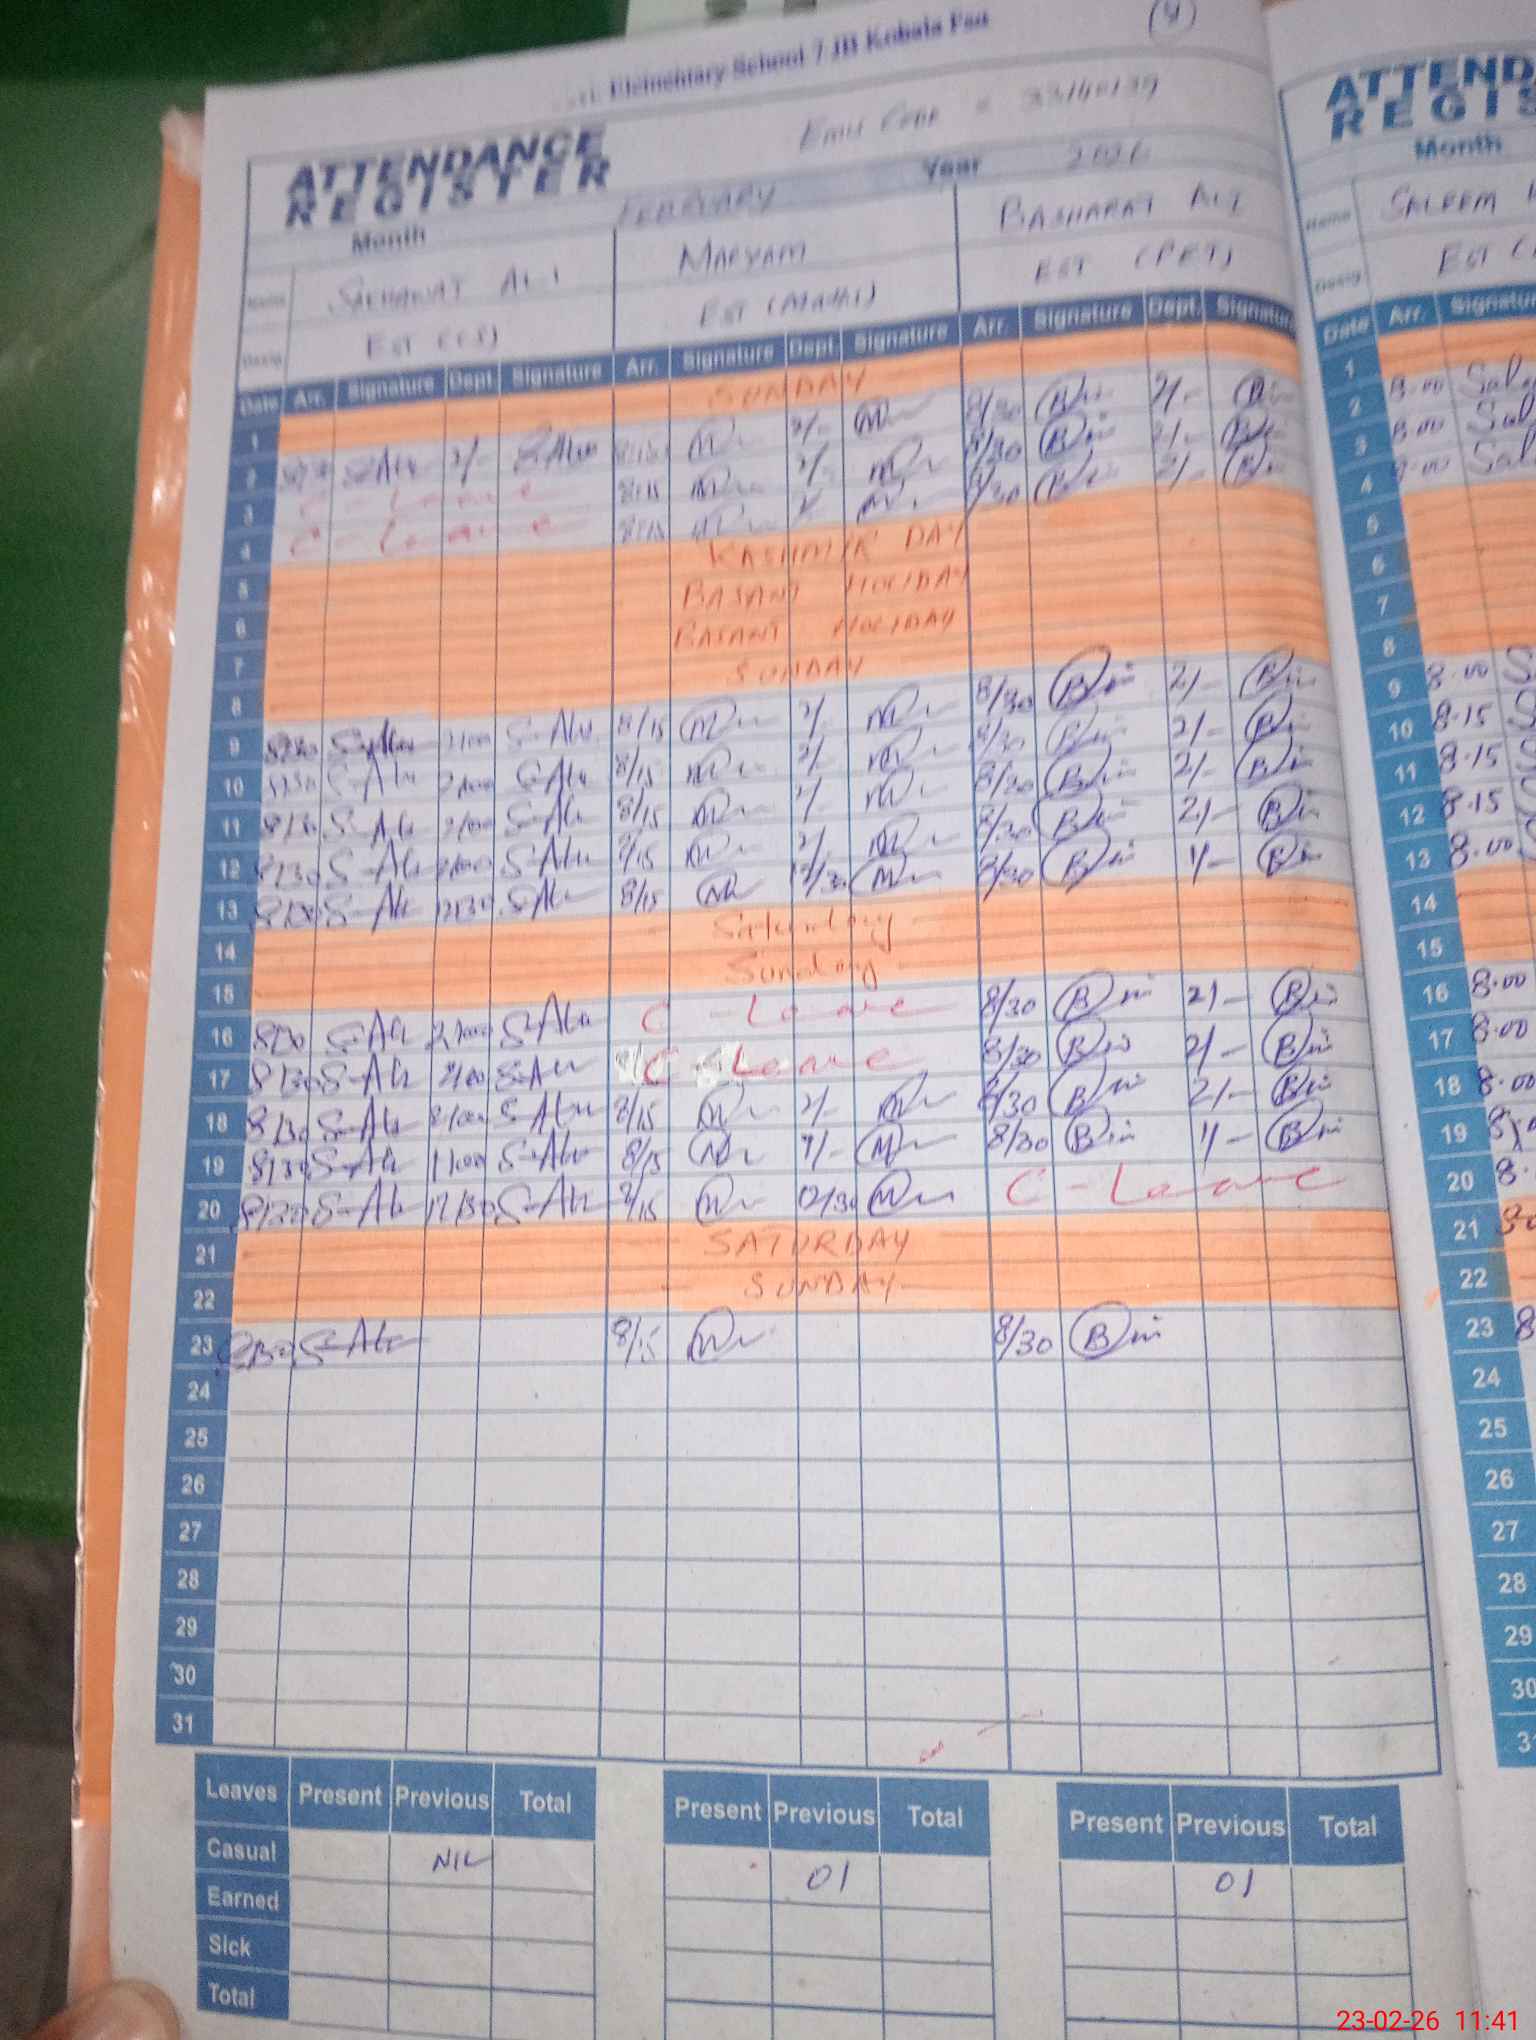 Elementary School 7 JB Kobala Fsd
(4)
Emis Code = 33140139
ATTENDANCE
REGISTER
Month FEBRUARY Year 2026
Name SAKHAWAT ALI MARYAM BASHARAT ALI
Desig EST (CS) EST (Math) EST (PET)
Date Arr. Signature Dept. Signature Arr. Signature Dept. Signature Arr. Signature Dept. Signature
1 SUNDAY
2 S-Ali 2/- S-Ali 8/15 2/- 8/30 2/-
3 C - Leave 8/15 2/- 8/30 2/-
4 C - Leave 8/15 8/30 2/-
5 KASHMIR DAY
6 BASANT HOLIDAY
7 BASANT HOLIDAY
8 SUNDAY
9 8/30 S-Ali 2/00 S-Ali 8/15 2/- 8/30 2/-
10 8/30 S-Ali 2/00 S-Ali 8/15 2/- 8/30 2/-
11 8/30 S-Ali 2/00 S-Ali 8/15 2/- 8/30 2/-
12 8/30 S-Ali 2/00 S-Ali 8/15 2/- 8/30 2/-
13 8/30 S-Ali 12/30 S-Ali 8/15 12/30 8/30 1/-
14 Saturday
15 Sunday
16 8/30 S-Ali 2/00 S-Ali C - Leave 8/30 2/-
17 8/30 S-Ali 2/00 S-Ali C - Leave 8/30 2/-
18 8/30 S-Ali 2/00 S-Ali 8/15 2/- 8/30 2/-
19 8/30 S-Ali 1/00 S-Ali 8/15 1/- 8/30 1/-
20 8/30 S-Ali 12/30 S-Ali 8/15 12/30 C - Leave
21 SATURDAY
22 SUNDAY
23 8/30 S-Ali 8/15 8/30
24
25
26
27
28
29
30
31
Leaves Present Previous Total Present Previous Total Present Previous Total
Casual NIL 01 01
Earned
Sick
Total
ATTEND
REGIS
Month
Name SALEEM
Desig EST
Date Arr. Signatur
1
2 8.00 Sal
3 8.00 Sal
4 8.00 Sal
5
6
7
8
9 8.00 S
10 8.15 S
11 8.15 S
12 8.15
13 8.00
14
15
16 8.00
17 8.00
18 8.00
19
20
21
22
23 8
24
25
26
27
28
29
30
3
23-02-26 11:41